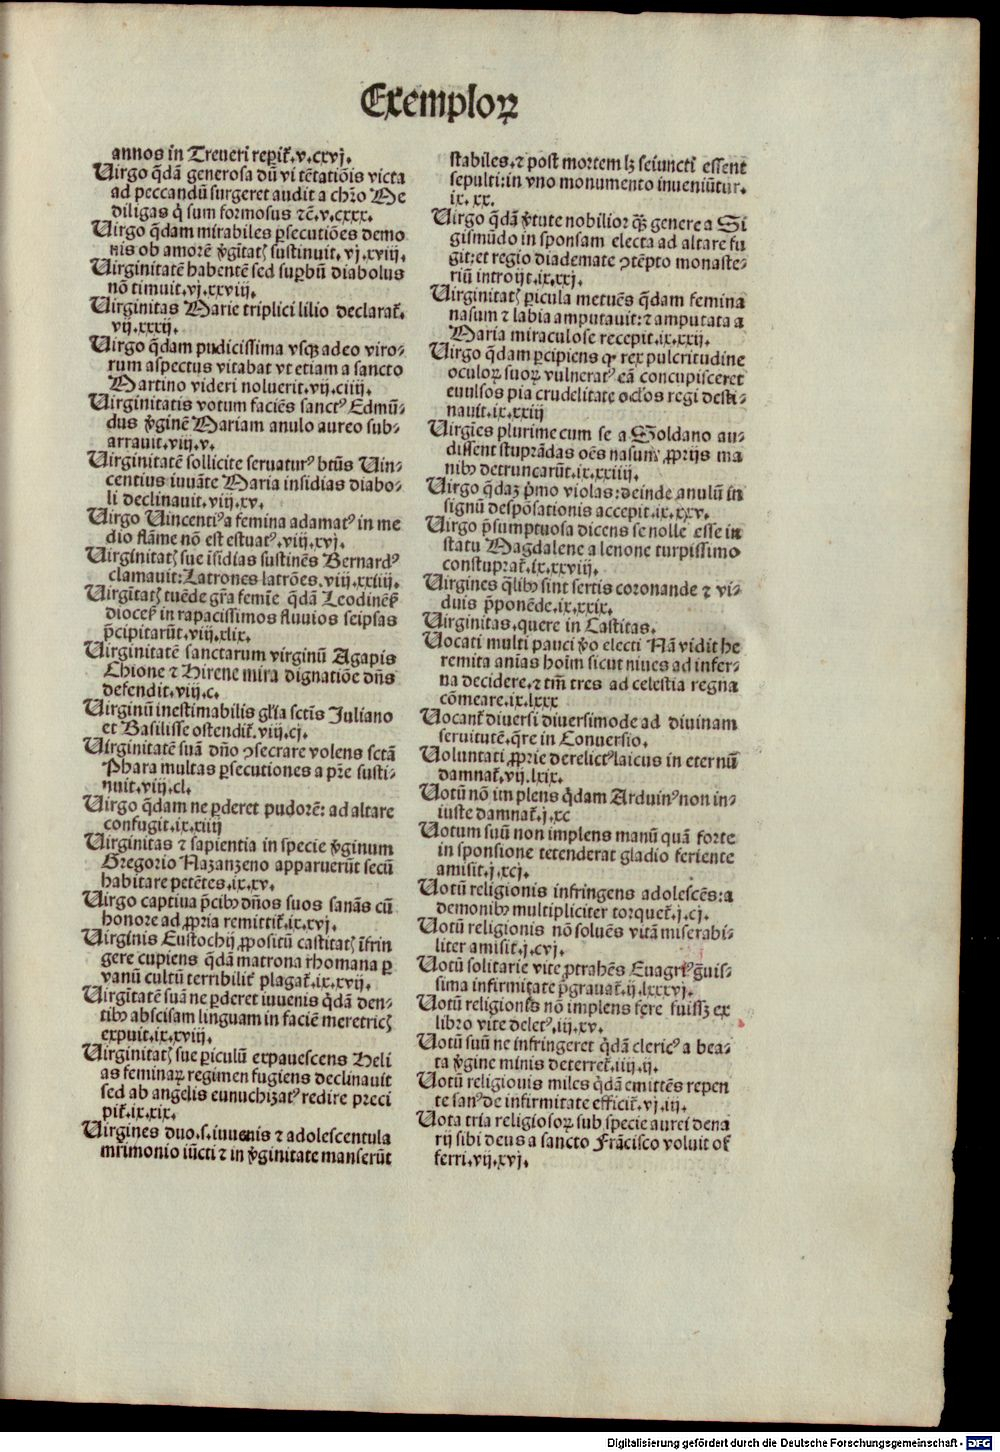 Exemploꝝ
annos in Treueri reꝑit᷑.v.cxvj.
Uirgo q̄dā generosa dū vi tētatiōis victa
ad peccandū surgeret audit a chr̄o Me
diligas q̇ sum formosus ⁊c̄.v.cxxx.
Uirgo q̄dam mirabiles ꝑsecutiōes demo
nis ob amorē ꝟgītatꝭ sustinuit.vj.xviij.
Uirginitatē habentē sed suꝑbū diabolus
nō timuit.vj.xxviij.
Uirginitas Marie triplici lilio declarat᷑.
vij.xxxij.
Uirgo q̄dam pudicissima vsqꝫ adeo viro⸗
rum aspectus vitabat vt etiam a sancto
Martino videri noluerit.vij.ciiij.
Uirginitatis votum faciēs sanctꝰ Edmū⸗
dus ꝟginē Mariam anulo aureo sub⸗
arrauit.viij.v.
Uirginitatē sollicite seruaturꝰ btūs Uin⸗
centius iuuāte Maria insidias diabo⸗
li declinauit.viij.xv.
Uirgo Uincentiꝰ a femina adamatꝰ in me
dio flāme nō est estuatꝰ.viij.xvj.
Uirginitatꝭ sue īsidias sustinēs Bernardꝰ
clamauit:Latrones latrōes.viij.xxiiij.
Uirgītatꝭ tuēde gr̄a femīe q̄dā Leodinēs̄
dioces̄ in rapacissimos fluuios seipsas
p̄cipitarūt.viij.xlix.
Uirginitatē sanctarum virginū Agapis
Chione ⁊ Hirene mira dignatiōe dn̄s
defendit.viij.c.
Uirginū inestimabilis gl̄ia sctīs Juliano
et Basilisse ostendit᷑.viij.cj.
Uirginitatē suā dn̄o ↄsecrare volens sctā
Phara multas ꝑsecutiones a pr̄e susti⸗
nuit.viij.cl.
Uirgo q̄dam ne ꝑderet pudorē: ad altare
confugit.ix.xiiij
Uirginitas ⁊ sapientia in specie ꝟginum
Gregorio Nazanzeno apparuerūt secū
habitare petētes.ix.xv.
Uirgo captiua p̄cibꝰ dn̄os suos sanās cū
honore ad ꝓpria remittit᷑.ix.xvj.
Uirginis Eustochij ꝓpositū castitatꝭ īfrin
gere cupiens q̄dā matrona rhomana ꝑ
vanū cultū terribilit᷑ plagat᷑.ix.xvij.
Uirgītatē suā ne ꝑderet iuuenis q̄dā den⸗
tibꝰ abscisam linguam in faciē meretricꝭ
expuit.ix.xviij.
Uirginitatꝭ sue ꝑiculū expauescens Heli
as feminaꝝ regimen fugiens declinauit
sed ab angelis eunuchizatꝰ redire preci
pit᷑.ix.xix.
Uirgines duo.s.iuuenis ⁊ adolescentula
mrimonio iūcti ⁊ in ꝟginitate manserūt
stabiles.⁊ post mortem lꝫ seiuncti essent
sepulti:in vno monumento inueniūtur.
ix.xx.
Uirgo q̄dā ꝟtute nobilior qꝫ genere a Si
gismūdo in sponsam electa ad altare fu
git:et regio diademate ↄtēpto monaste⸗
riū introijt.ix.xxj.
Uirginitatꝭ ꝑicula metuēs q̄dam femina
nasum ⁊ labia amputauit:⁊ amputata a
Maria miraculose recepit.ix.xxij.
Uirgo q̄dam ꝑcipiens ꝙ rex pulcritudine
oculoꝝ suoꝝ vulneratꝰ eā concupisceret
euulsos pia crudelitate ocl̄os regi desti⸗
nauit.ix.xxiij
Uirgīes plurime cum se a Soldano au⸗
dissent stuprādas oēs nasum ꝓprijs ma
nibꝰ detruncarūt.ix.xxiiij.
Uirgo q̄daꝫ p̄mo violas:deinde anulū in
signū despōsationis accepit.ix.xxv.
Uirgo p̄sumptuosa dicens se nolle esse in
statu Magdalene a lenone turpissimo
constuprat᷑.ix.xxviij.
Uirgines q̄libꝰ sint sertis coronande ⁊ vi⸗
duis p̄ponēde.ix.xxix.
Uirginitas.quere in Castitas.
Uocati multi pauci ꝟo electi Nā vidit he
remita aīas hoīm sicut niues ad infer⸗
na decidere.⁊ tm̄ tres ad celestia regna
cōmeare.ix.lxxx
Uocant᷑ diuersi diuersimode ad diuinam
seruitutē.q̄re in Conuersio.
Uoluntati ꝓprie derelictꝰ laicus in eternū
damnat᷑.vij.lxix.
Uotū nō implens q̇dam Arduinꝰ non in⸗
iuste damnat᷑.j.xc
Uotum suū non implens manū quā forte
in sponsione tetenderat gladio feriente
amisit.j.xcj.
Uotū religionis infringens adolescēs:a
demonibꝰ multipliciter torquet᷑.j.cj.
Uotū religionis nō soluēs vitā miserabi⸗
liter amisit.j.cvj.
Uotū solitarie vite ꝓtrahēs Euagriꝰ ḡuis⸗
sima infirmitate p̄grauat᷑.ij.lxxxvj.
Uotū religionis nō implens fere fuissꝫ ex
libro vite deletꝰ.iij.xv.
Uotū suū ne infringeret q̇dā clericꝰ a bea⸗
ta ꝟgine minis deterret᷑.iiij.ij.
Uotū religiouis miles q̇dā emittēs repen
te sanꝰ de infirmitate efficit᷑.vj.iij.
Uota tria religiosoꝝ sub specie aurei dena
rij sibi deus a sancto Frācisco voluit of
ferri.vij.xvj.
Digitalisierung gefördert durch die Deutsche Forschungsgemeinschaft - DFG